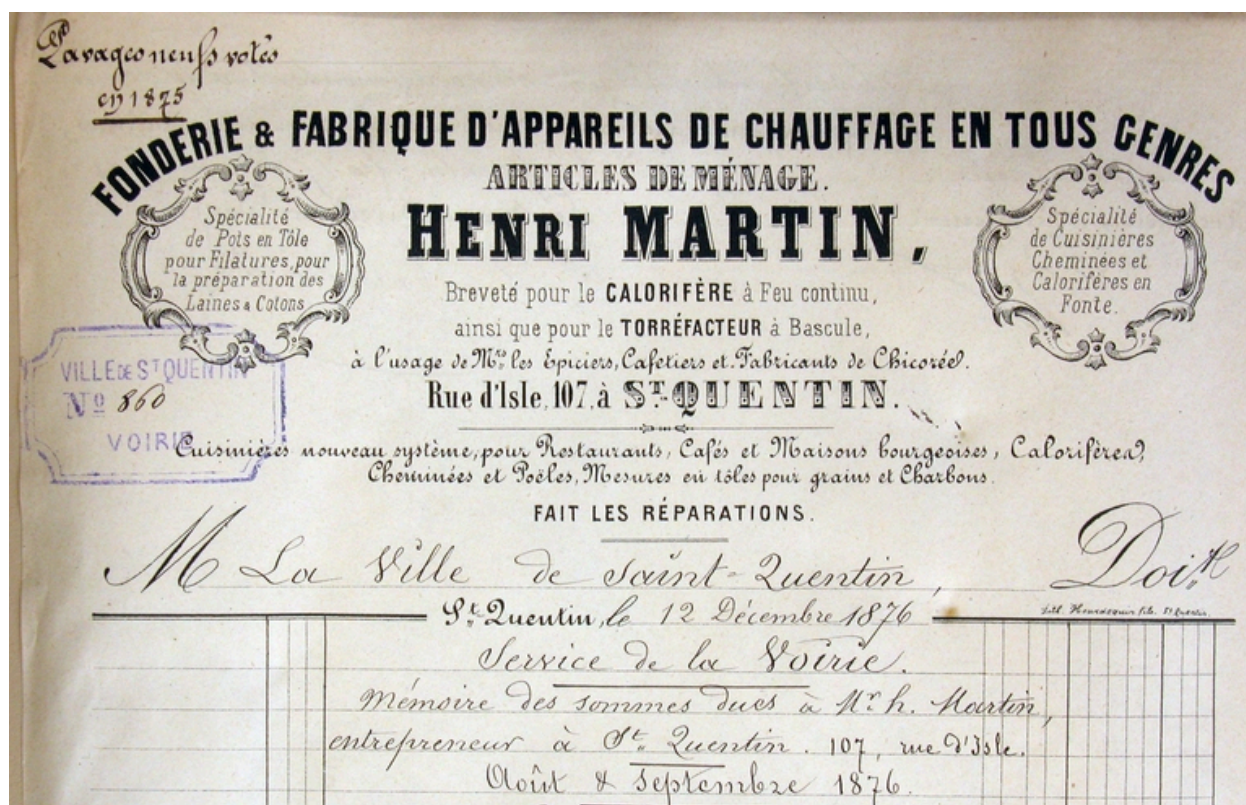 Pavages neufs votés
en 1875
FONDERIE & FABRIQUE D'APPAREILS DE CHAUFFAGE EN TOUS GENRES
ARTICLES DE MÉNAGE.
HENRI MARTIN,
Spécialité
de Pots en Tôle
pour Filatures, pour
la préparation des
Laines & Cotons
Spécialité
de Cuisinières
Cheminées et
Calorifères en
Fonte.
Breveté pour le CALORIFÈRE à Feu continu,
ainsi que pour le TORRÉFACTEUR à Bascule,
à l'usage de Mrs les Epiciers, Cafetiers et Fabricants de Chicorée.
Rue d'Isle, 107, à ST-QUENTIN.
VILLE DE ST QUENTIN
No 860
VOIRIE
Cuisinières nouveau système, pour Restaurants, Cafés et Maisons bourgeoises, Calorifères,
Cheminées et Poëles, Mesures en tôles pour grains et Charbons.
FAIT LES RÉPARATIONS.
M La Ville de Saint-Quentin, Doit
St Quentin, le 12 Décembre 1876
Lith. St Quentin.
Service de la Voirie.
Mémoire des sommes dues à Mr. h. Martin,
entrepreneur à St. Quentin. 107, rue d'Isle.
Août & Septembre 1876.